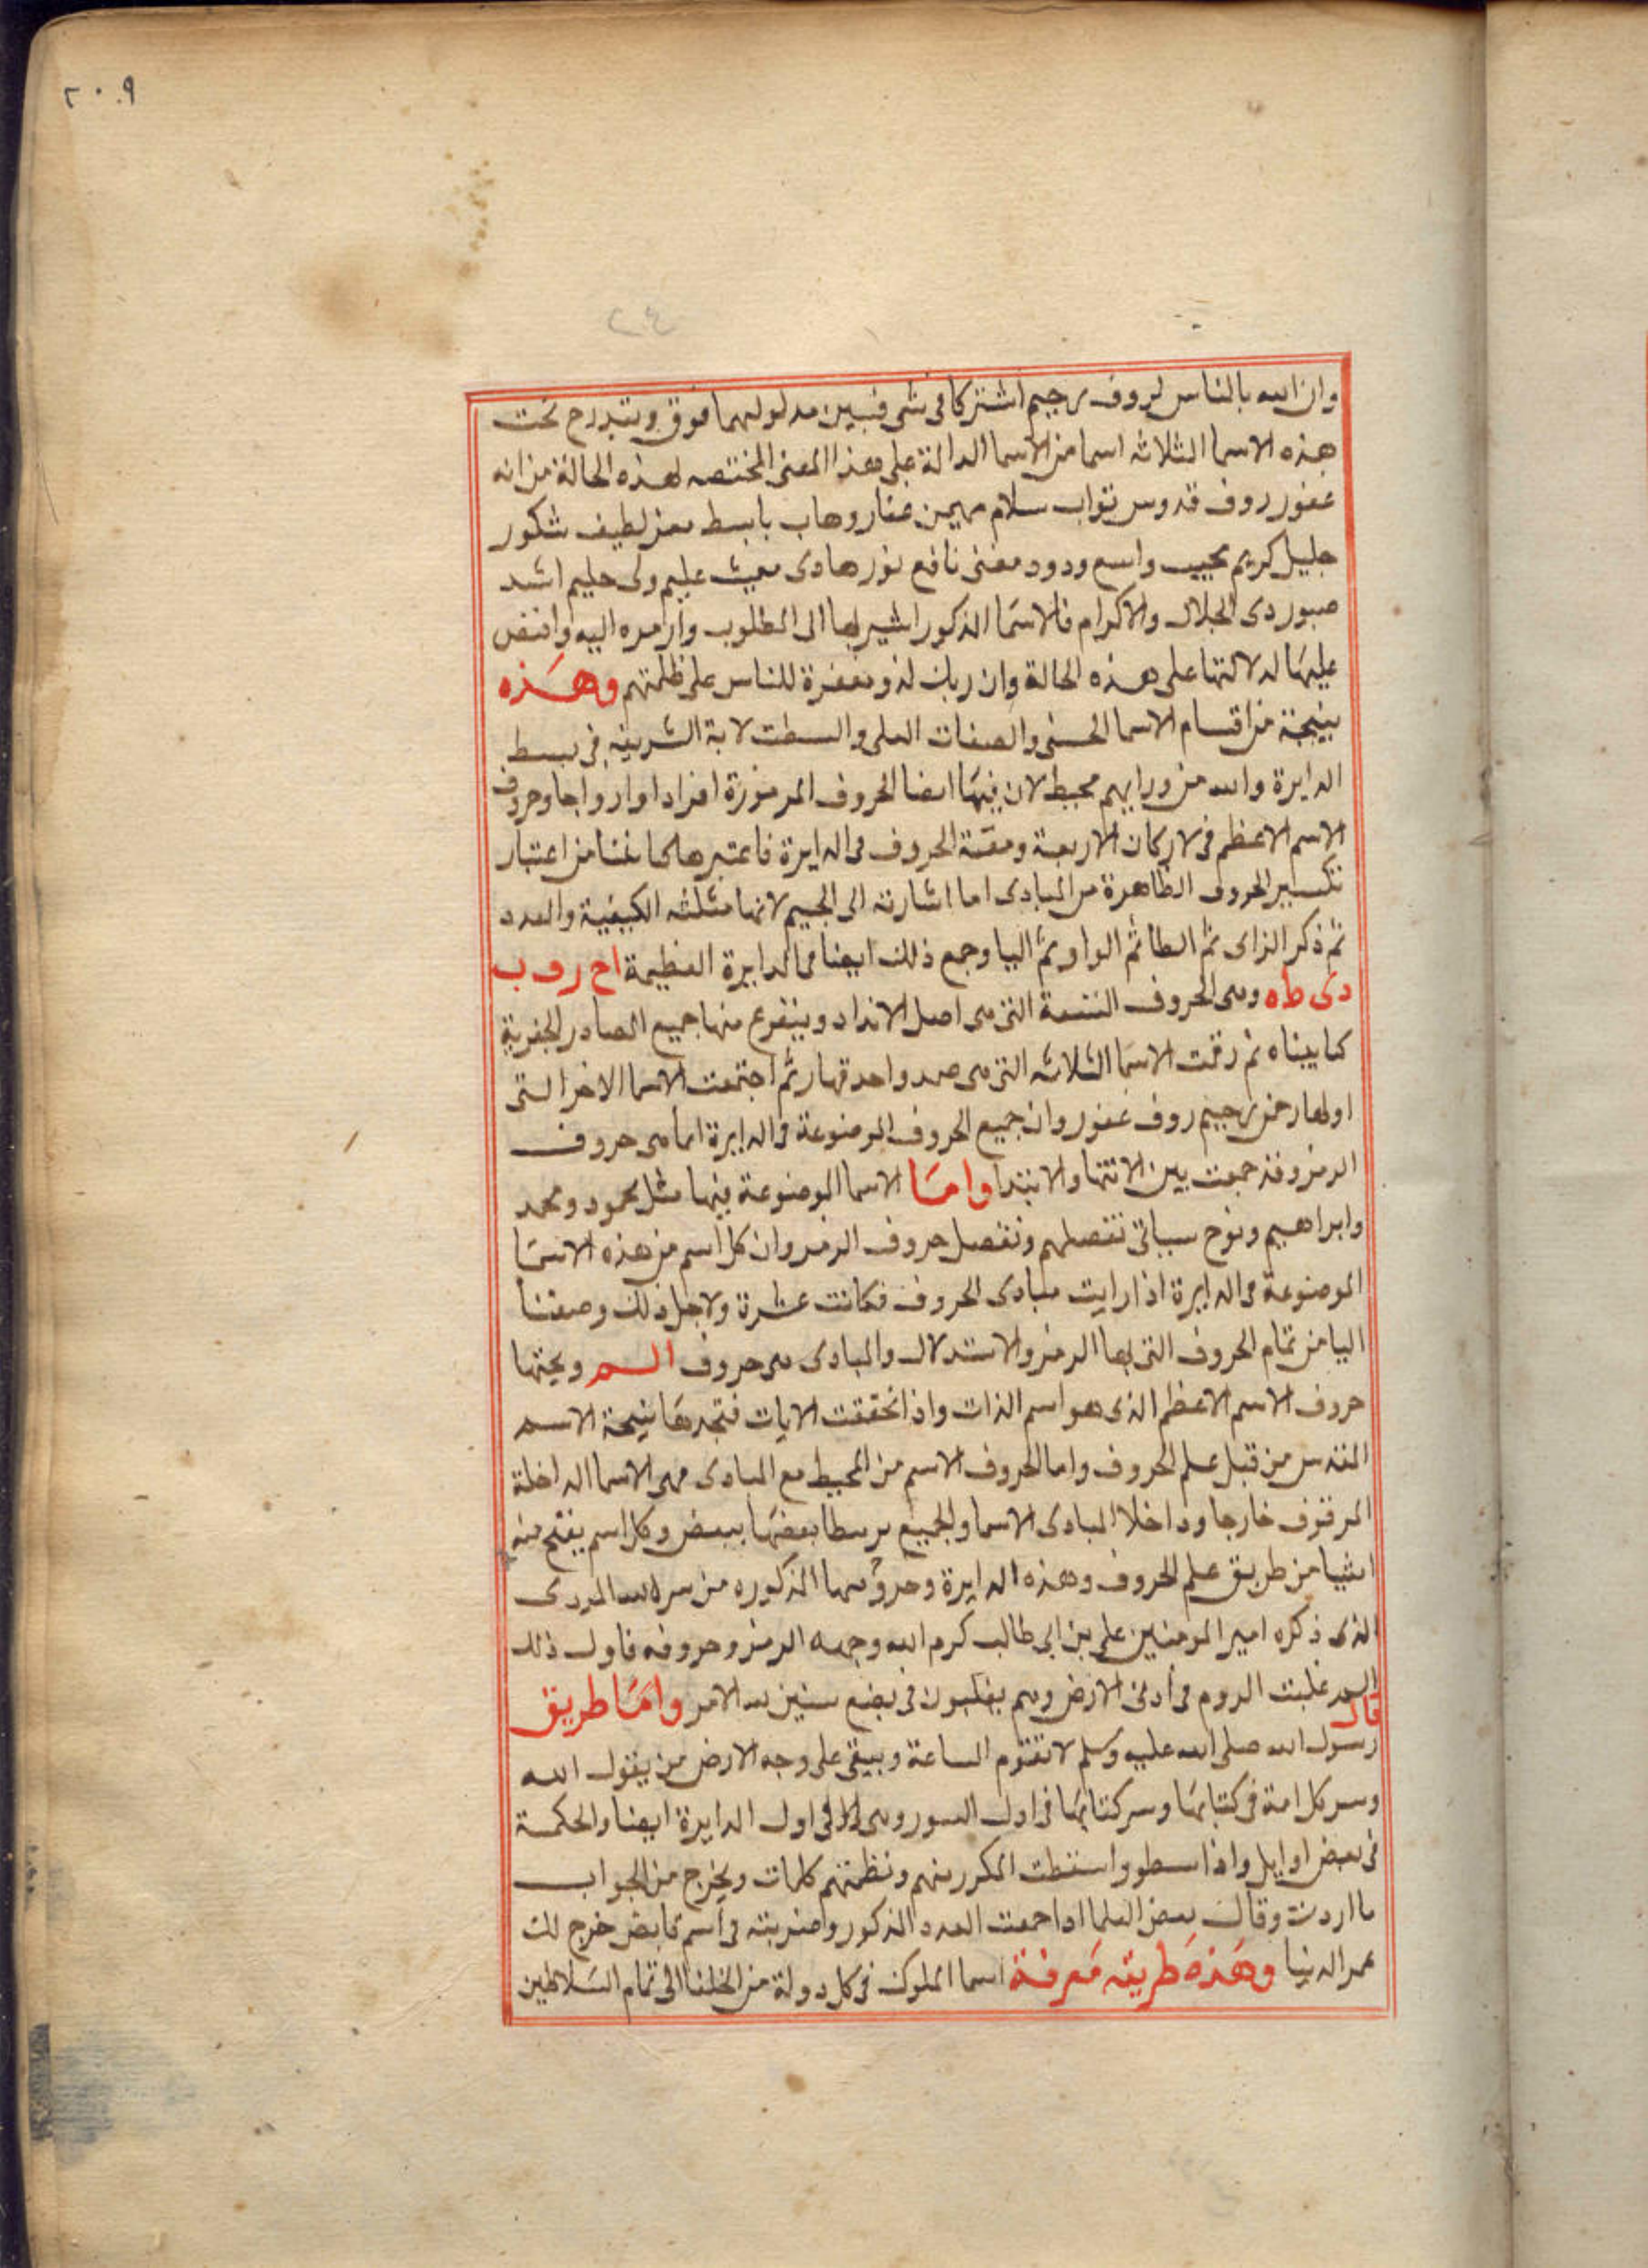 ٢٠٩
٢٤
وان الله بالناس لروف رحيم اشتركا فى شى فبين مدلولهما فوق ويندرج تحت
هذه الاسما الثلاثه اسما من الاسما الدالة على هذا المعنى المختصه لهذه الحالة من انه
غفور روف قدوس تواب سلام مهيمن غفار وهاب باسط معز لطيف شكور
جليل كريم مجيب واسع ودود مغنى نافع نور هادى مغيث عليم ولى حليم اشد
صبور دى الجلال والاكرام فالاسما المذكور اشير بها الى المطلوب وارمزه اليه وافنص
عليها لدلالتها على هذه الحالة وان ربك لذو مغفرة للناس على ظلمتهم وهذه
بنيجة من اقسام الاسما الحسنى والصفات العلى والسطت لاية الشريفه فى بسط
الدايرة والله من ورايهم محيط لان فيها ايضا الحروف المرموزة افرادا وازواجا وحروف
الاسم الاعظم فى لاركان الاربعة ومقتة الحروف فى الدايرة فاعتبرها من اعتبار
تكسير الحروف الظاهرة من المبادى اما اشارته الى الجيم لانها مثلثه الكيفية والعدد
ثم ذكر الزاى ثم الطا ثم الواو ثم اليا وجمع ذلك ايضا فى الدايرة العظيمة اح روب
دى طه وهى الحروف التسعة التى هى اصل الافراد ويتفرع منها جميع المصادر الجفرية
كما بيناه ثم رقت الاسما الثلاثه التى هى صمد واحد قهار ثم اجتمعت الاسما الاخر التى
اولها رحمن رحيم روف غفور وان جميع الحروف الموضوعة فى الدايرة انما هى حروف
الرمز وقد جمعت بين الانتها والابتدا واما الاسما الموضوعة فيها مثل محمود ومحمد
وابراهيم ونوح سياتى تفصيلهم وتفصل حروف الرمز وان كل اسم من هذه الاسما
الموضوعة فى الدايرة اذا رايت مبادى الحروف فكانت عشرة ولاجل ذلك وضعنا
اليا من تمام الحروف التى بها الرمز والاستدلال والمبادى هى حروف الم ويحتها
حروف الاسم الاعظم الذى هو اسم الذات واذا تحققت الايات فتجدها نتيجة الاسم
المقدس من قبل علم الحروف واما الحروف الاسم من المحيط مع المبادى فهى الاسما الداخلة
المرقوف خارجا وداخلا المبادى الاسما والجميع بعضها ببعض وكل اسم يفتح منه
اشيا من طريق علم الحروف وهذه الدايرة وحروفها المذكوره من سر الله المردى
الذى ذكره امير المومنين على بن ابى طالب كرم الله وجهه الرمز وحروفه فاول ذلك
الم غلبت الروم فى ادنى الارض وهم يغلبون فى بضع سنين لله الامر واما طريق
قال
رسول الله صلى الله عليه وسلم لا تقوم الساعة ويبقى على وجه الارض من يقول الله
وسر كل امة فى كتابها وسر كتابها فى اول السور وهى اول الدايرة ايضا والحكمة
فى بعض اوايل واذا واسقطت المكرر منهم ونظمتهم كلمات ويخرج من الجواب
ما اردت وقال بعض العلما اذا جمعت العدد المذكور وضربته فى اسم قابض خرج لك
عمر الدنيا وهذه طريقه معرفة اسما الملوك فى كل دولة من الخلفا الى تمام السلاطين